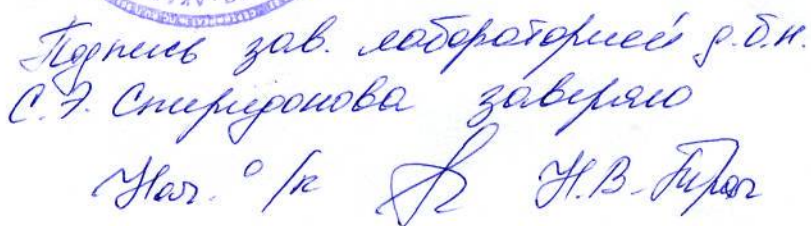 Подпись зав. лабораторией д.б.н.
С.Э. Спиридонова заверяю
Нач. о/к Н.В.